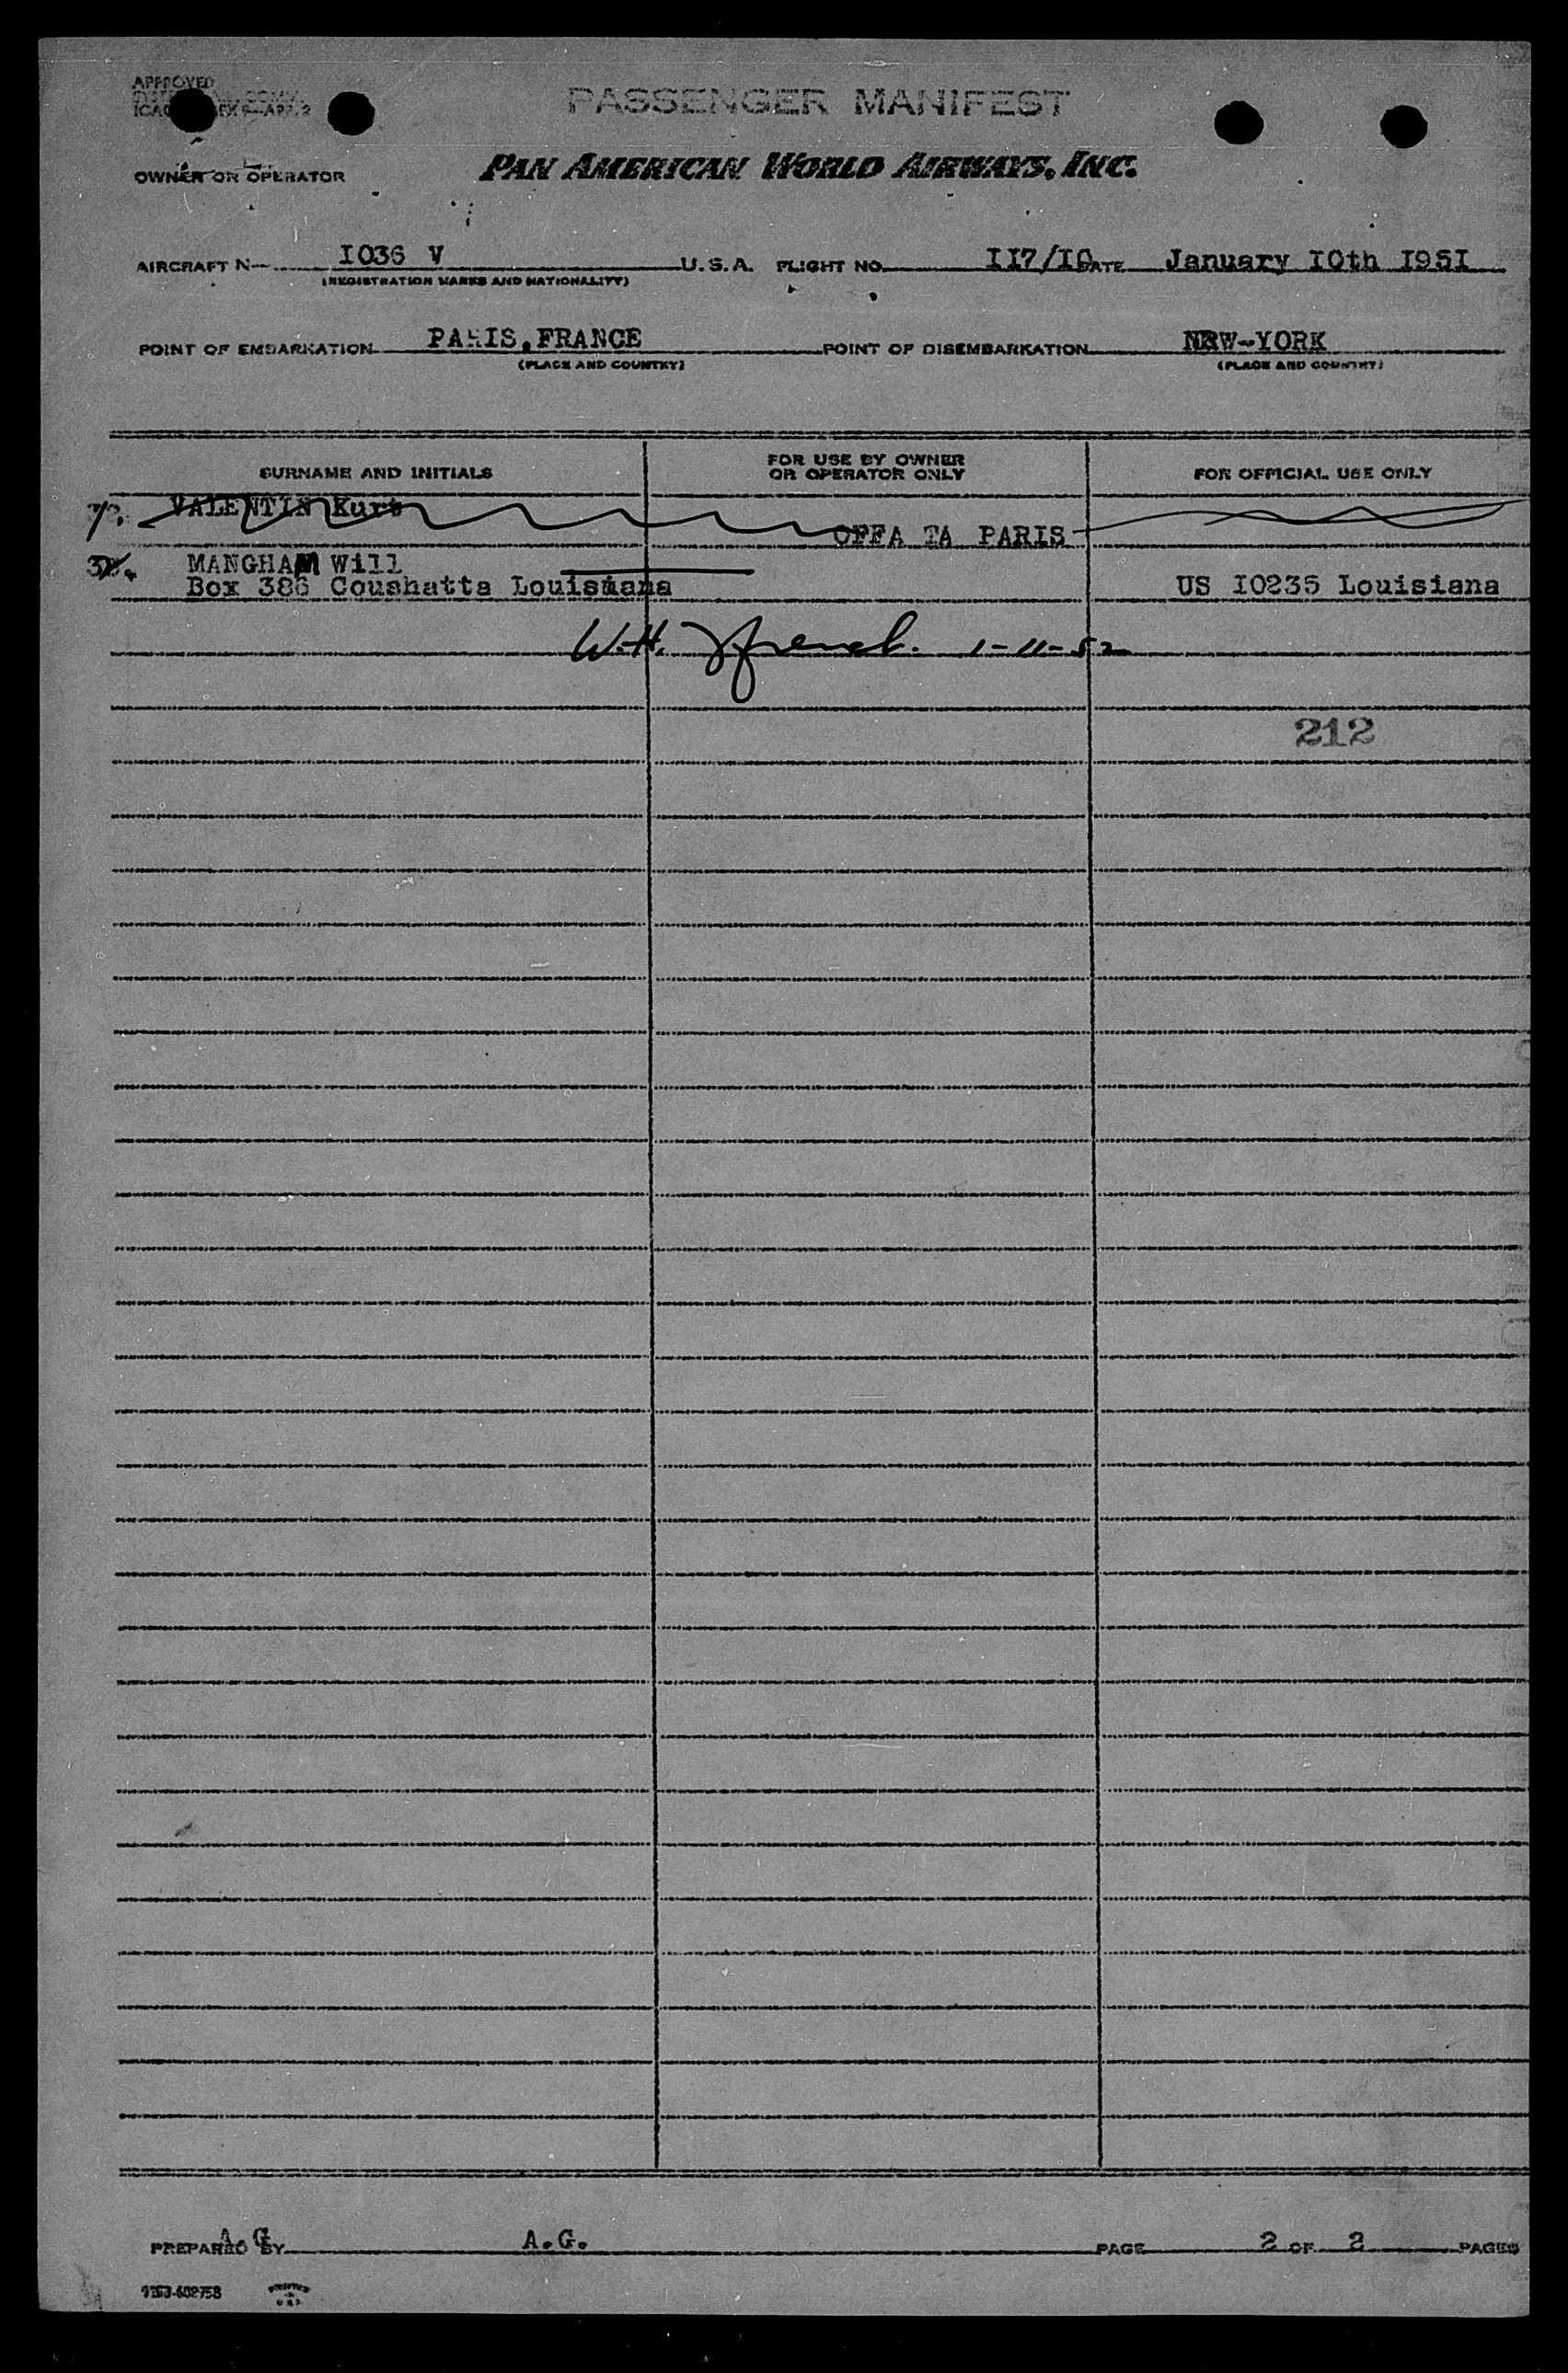 APPROVED
PASSENGER MANIFEST
OWNER OR OPERATOR
PAN AMERICAN WORLD AIRWAYS, INC.
AIRCRAFT N— I036 V U.S.A. FLIGHT NO. II7/I0 DATE January I0th I95I
(REGISTRATION MARKS AND NATIONALITY)
POINT OF EMBARKATION PARIS,FRANCE POINT OF DISEMBARKATION NEW-YORK
(PLACE AND COUNTRY) (PLACE AND COUNTRY)
SURNAME AND INITIALS FOR USE BY OWNER OR OPERATOR ONLY FOR OFFICIAL USE ONLY
VALENTIN Kurt
OFFA TA PARIS
MANGHAM Will
Box 386 Coushatta Louisiana US I0235 Louisiana
W.H. 1-11-52
212
PREPARED BY A.G. A.G. PAGE 2 OF 2 PAGES
PRINTED IN U.S.A.